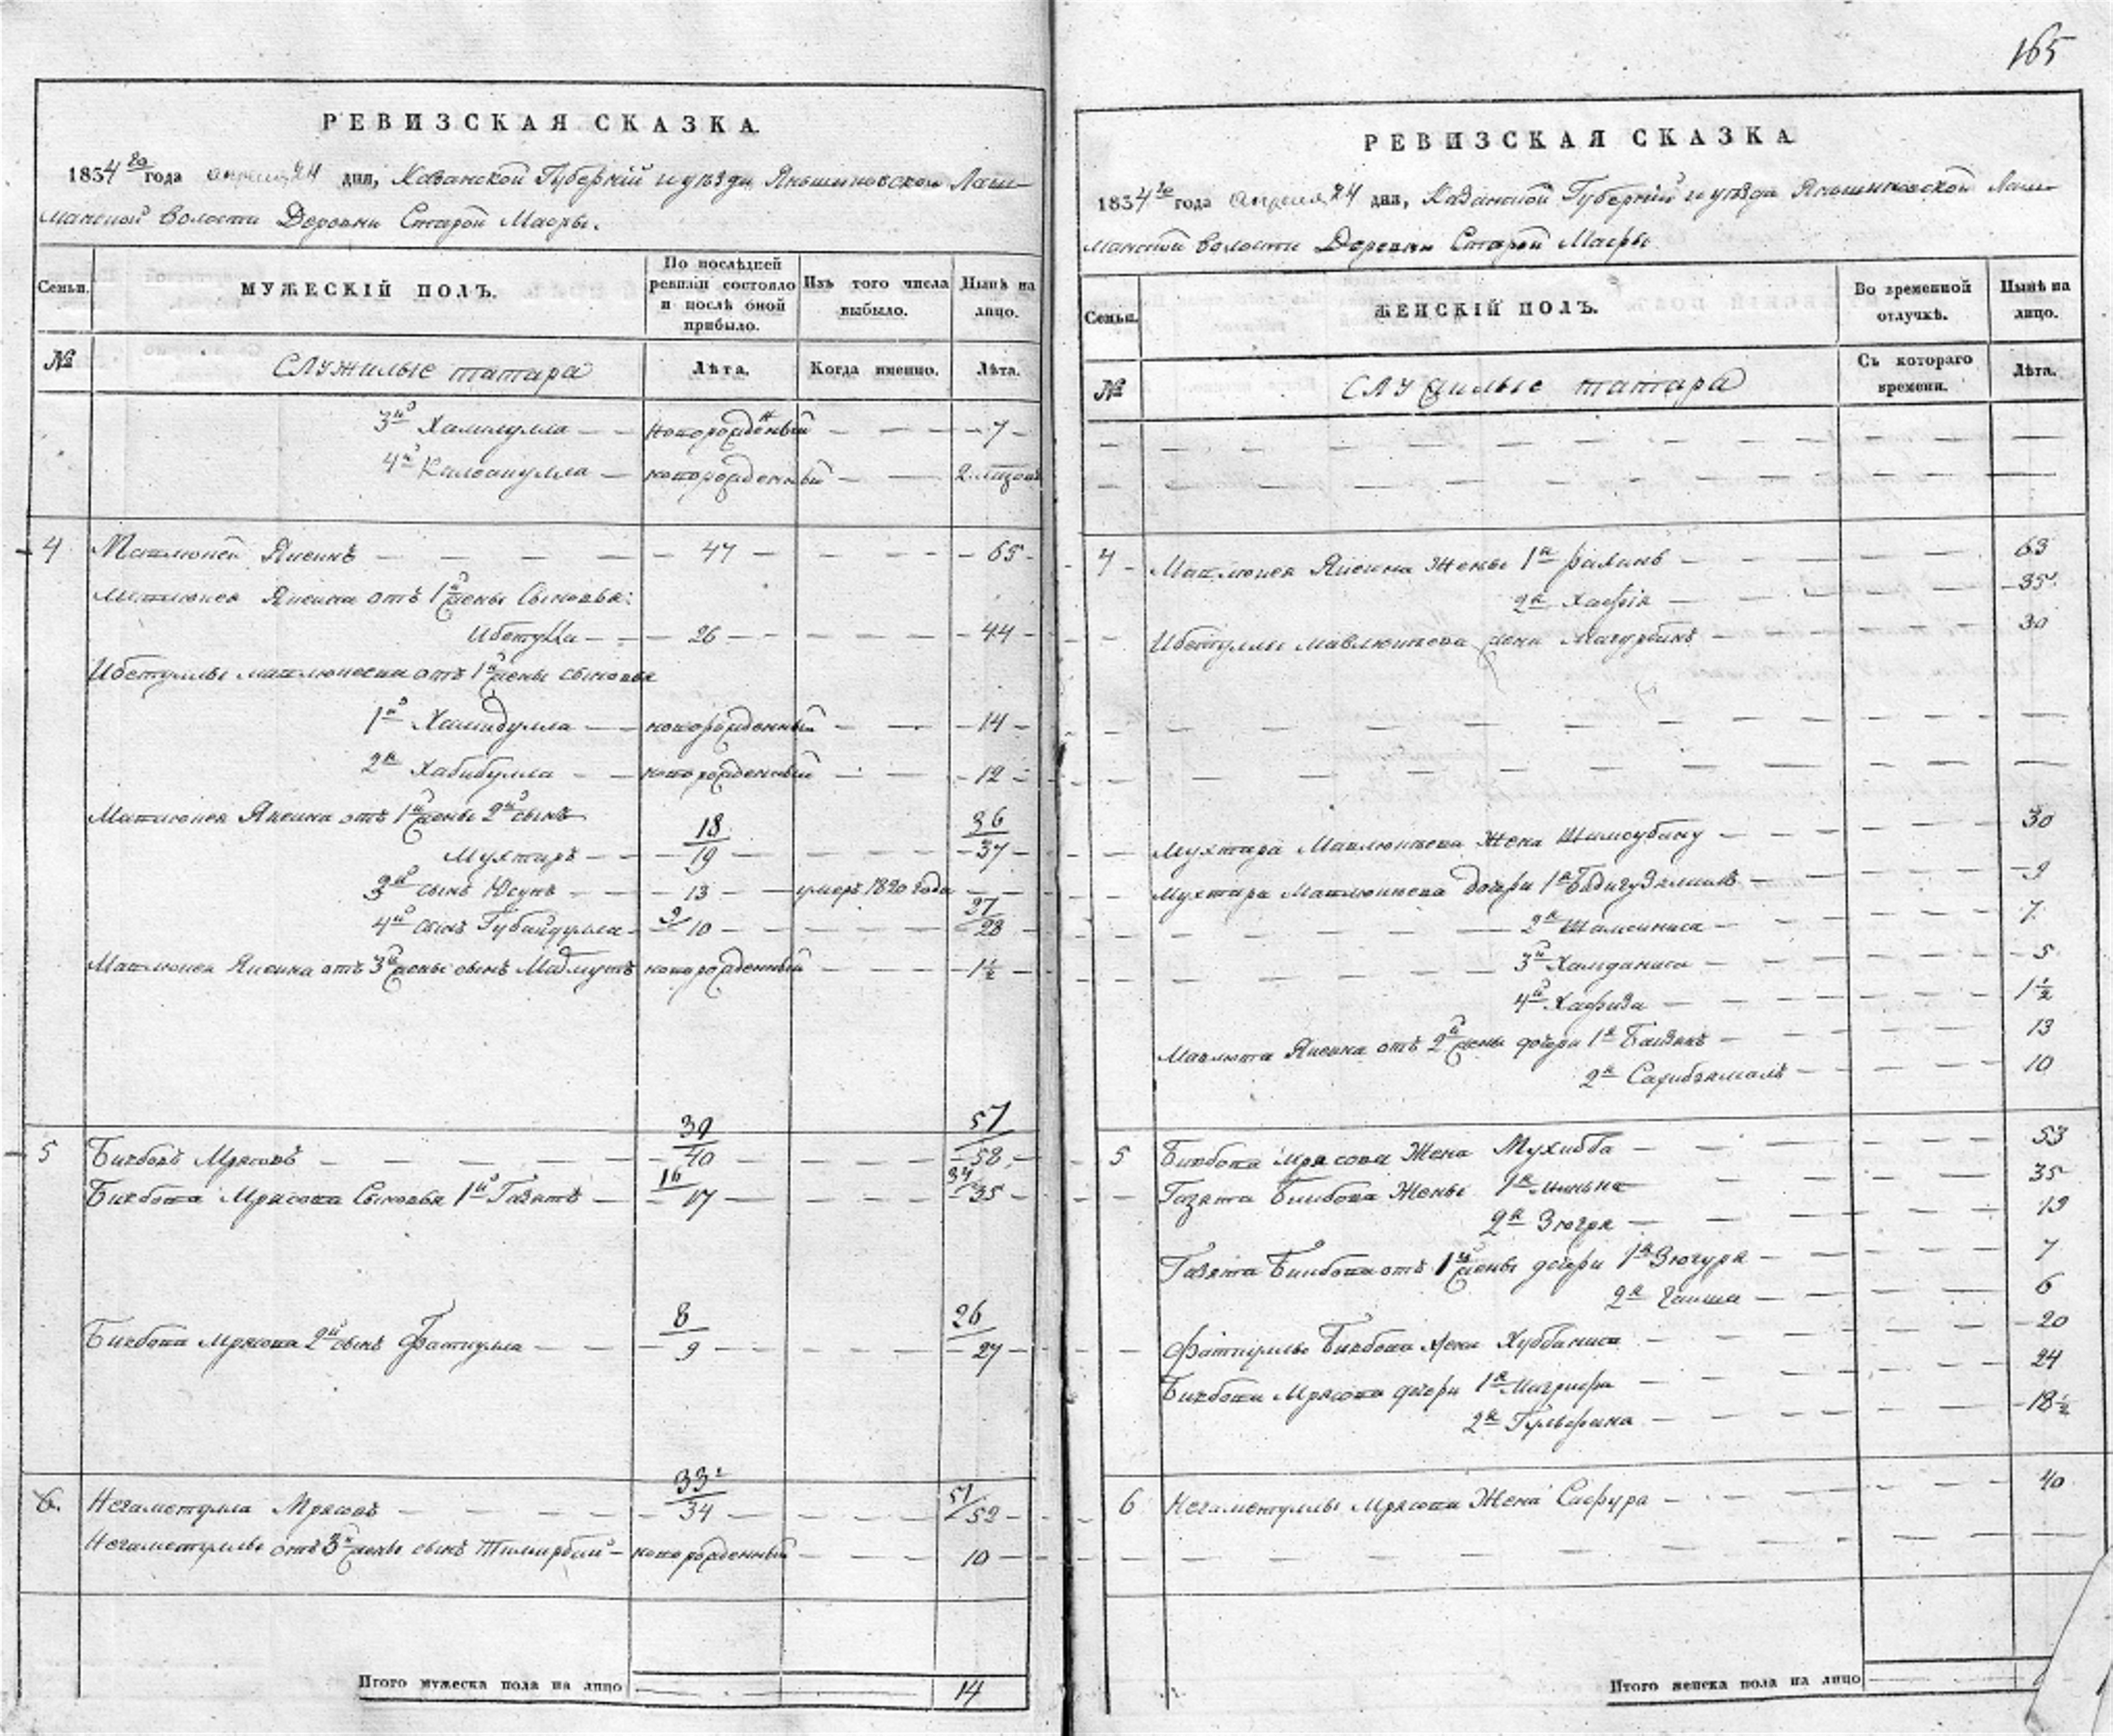 165
РЕВИЗСКАЯ СКАЗКА.
1834го года апреля 24 дня, Казанской Губернии и уезда Яньшиковской Лаш-
манской волости Деревни Старой Масры.
Семьи. МУЖЕСКІЙ ПОЛЪ. По послѣдней ревизіи состояло и послѣ оной прибыло. Изъ того числа выбыло. Нынѣ на лицо.
№ Служилые татара Лѣта. Когда именно. Лѣта.
3й Хамлулла — новорожденный — 7
4й — новорожденный — 2
4 Мавлюкей Яисинъ — 47 — 65
Мавлюкея Яисина отъ 1й жены сыновья:
Ибетулла — 26 — 44
Ибетуллы отъ 1й жены сыновья
1й Хамидулла — новорожденный — 14
2й Хабибулла — новорожденный — 12
Мавлюкея Яисина отъ 1й жены 2й сынъ
Мухтаръ — 18/19 — 36/37
3й сынъ Юсупъ — 13 — умеръ 1820 года
4й сынъ Губайдулла — 9/10 — 27/28
Мавлюкея Яисина отъ 3й жены сынъ Махмутъ новорожденный — 1½
5 Бикбовъ Мрясовъ — 39/40 — 57/58
Бикбова Мрясова Сыновья 1й Газятъ — 16/17 — 34/35
Бикбова Мрясова 2й сынъ Фаткулла — 8/9 — 26/27
6. Негаметулла Мрясовъ — 33/34 — 51/52
Негаметуллы отъ 3й жены сынъ Тимирбай — новорожденный — 10
Итого мужеска пола на лицо 14
РЕВИЗСКАЯ СКАЗКА
1834го года апреля 24 дня, Казанской Губернии и уезда Яньшиковской Лаш-
манской волости Деревни Старой Масры
Семьи. ЖЕНСКІЙ ПОЛЪ. Во временной отлучкѣ. Нынѣ на лицо.
№ Служилые татара Съ котораго времени. Лѣта.
4 Мавлюкея Яисина жены 1я — 63
2я Хафія — 35
Ибетуллы Мавлюкеева жена — 30
Мухтара Мавлюкеева Жена — 30
Мухтара Мавлюкеева дочери 1я — 9
2я Шамсиниса — 7
3я Хамданиса — 5
4й Хафиза — 1½
Мавлюта Яисина отъ 2й жены дочери 1я — 13
2я — 10
5 Бикбова Мрясова Жена Мухибба — 53
Газята Бикбова Жены 1я — 35
2я Зюгра — 19
Газята Бикбова отъ 1й жены дочери 1я Зюгура — 7
2я Гаиша — 6
Фаткуллы Бикбова жена Хуббаниса — 20
Бикбова Мрясова дочери 1я — 24
2я — 18½
6 Негаметуллы Мрясова Жена Сафура — 40
Итого женска пола на лицо